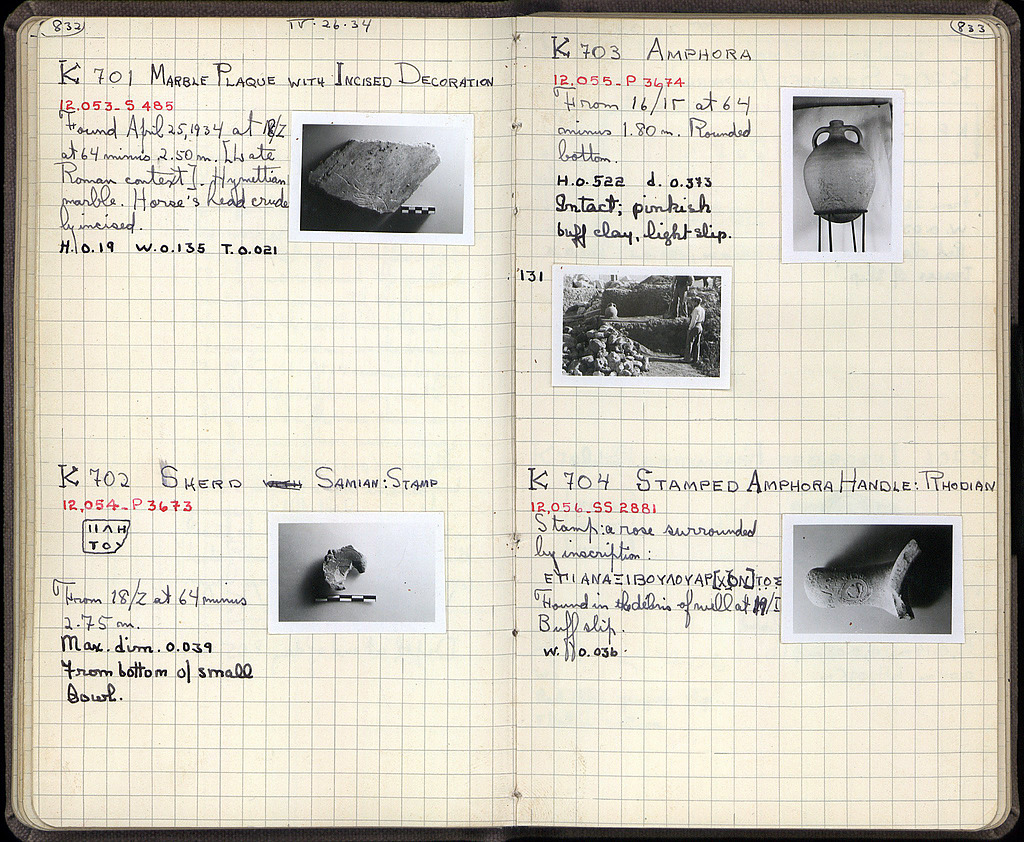 832
IV·26·34
K 701 MARBLE PLAQUE WITH INCISED DECORATION
12.053-S 485
Found April 25, 1934 at 18/Z
at 64 minus 2.50 m. [Late
Roman context]. Hymettian
marble. Horse's head crude
ly incised.
H. 0.19 W. 0.135 T. 0.021
K 702 SHERD SAMIAN: STAMP
12,054-P 3673
ΠΛΗ
ΤΟΥ
From 18/Z at 64 minus
2.75 m.
Max. dim. 0.039
From bottom of small
bowl.
833
K 703 AMPHORA
12.055-P 3674
From 16/ at 64
minus 1.80 m. Rounded
bottom.
H. 0.522 d. 0.373
Intact; pinkish
buff clay, light slip.
131
K 704 STAMPED AMPHORA HANDLE: RHODIAN
12,056-SS 2881
Stamp: a rose surrounded
by inscription:
ΕΠΙ ΑΝΑΞΙΒΟΥΛΟΥ ΑΡ[ΧΟΝ]ΤΟΣ
Found in the debris of well at
Buff slip.
W. 0.036.